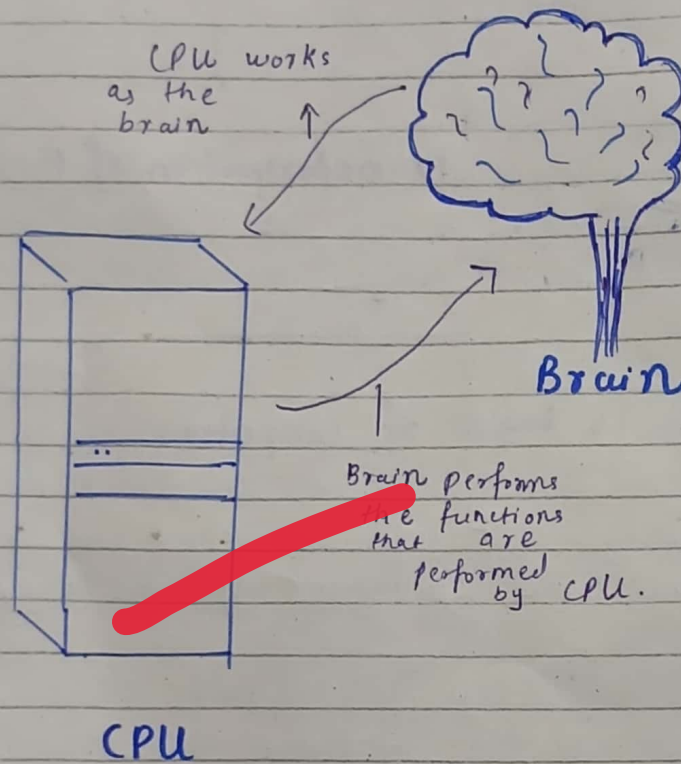 CPU works
as the
brain
Brain
Brain performs
the functions
that are
performed
by CPU.
CPU